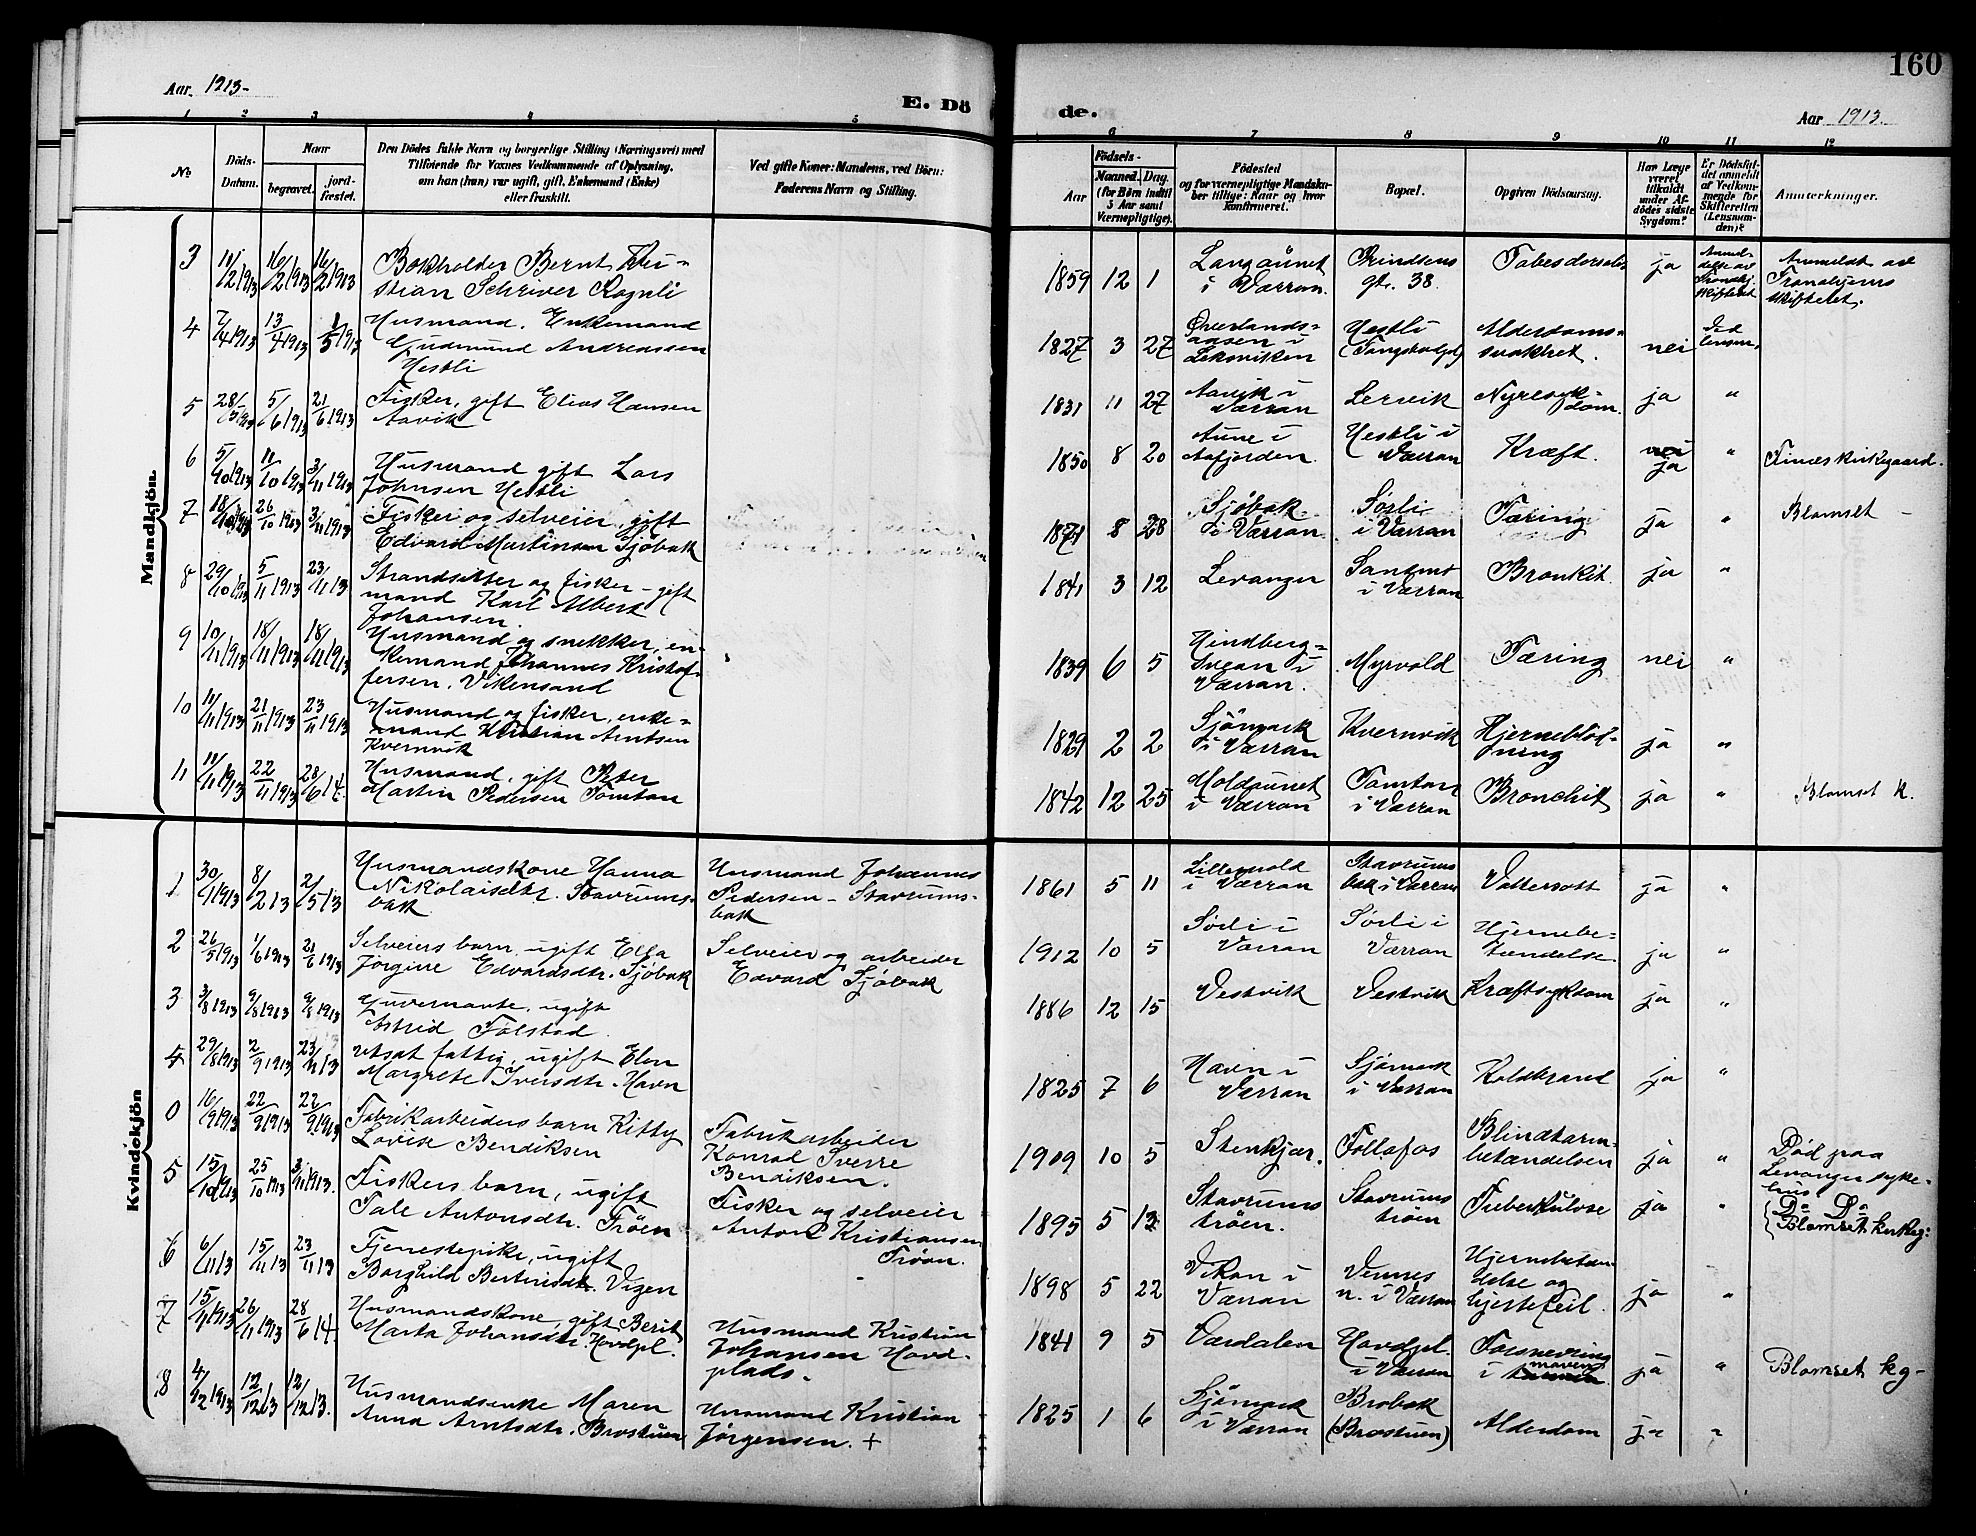 160
Aar. 1913-
E. Dö
de.
Aar 1913.
1 2 3 4 5 6 7 8 9 10 11 12
No
Döds-Datum.
Naar
begravet.
jord-fæstet.
Den Dödes fulde Navn og borgerlige Stilling (Næringsvei) med
Tilföiende for Voxnes Vedkommende af Oplysning,
om han (hun) var ugift, gift, Enkemand (Enke)
eller fraskilt.
Ved gifte Koner: Mandens, ved Börn:
Faderens Navn og Stilling.
Födsels-
Aar
Maaned. Dag.
(for Börn indtil
5 Aar samt
Værnepligtige).
Födested
og for værnepligtige Mandska-
ber tillige: Naar og hvor
konfirmeret.
Bopæl.
Opgiven Dödsaarsag.
Har Læge
været
tilkaldt
under Af-
dödes sidste
Sygdom?
Er Dödsfal-
det anmeldt
af Vedkom-
mende for
Skifteretten
(Lensman-
den)?
Anmærkninger.
Mandkjön.
3 11/2 1913 16/2 1913 16/2 1913 Bokholder Bernt Kri-
stian Schriver Rognli
1859 12 1 Langaunet
i Værran. Prindsens
gt. 38. Tabes dorsalis ja Anmel-
delse av
Trondhj.
skifteret Anmeldt av
Trondhjems
skifteret.
4 7/4 1913 13/4 1913 1/5 1913 Husmand. Enkemand
Gudmund Andreassen
Hestli
1827 3 27 Överlands-
aasen i
Leksviken Hestli
Alderdoms-
svakhet. nei Ved
lensm.
5 28/5 1913 5/6 1913 21/6 1913 Fisker, gift Elias Hansen
Aavik
1831 11 27 Aavik i
Værran Lervik Nyresyk-
dom. ja "
6 5/10 1913 11/10 1913 3/11 1913 Husmand gift Lars
Johnsen Hestli
1850 8 20 Aune i
Aafjorden Hestli i
Værran Kræft. ja " Finæs kirkegaard.
7 18/10 1913 26/10 1913 3/11 1913 Fisker og selveier, gift
Edvard Martinsen Sjöbak
1871 8 28 Sjöbak
i Værran. Sörli
i Værran Tæring ja " Blomset -
8 29/10 1913 5/11 1913 23/11 13 Strandsitter og fisker - gift
mand Karl Albert
Johansen.
1841 3 12 Levanger
i Værran Bronkit. ja "
9 10/11 1913 18/11 1913 18/11 1913 Husmand og snekker, en-
kemand Johannes Kristof-
fersen. Vikensand
1839 6 5 Hindberg-
svean i
Værran. Myrvold Tæring nei "
10 11/11 1913 21/11 1913 23/11 1913 Husmand og fisker, enke-
mand Kristian Arntsen
Kvernvik
1829 2 2 Sjömark
i Værran Kvernvik Hjerneblöd-
ning ja "
11 11/11 1913 22/11 1913 28/6 14. Husmand, gift Peter
Martin Pedersen Tömtan
1842 12 25 Moldaunet
i Værran Tömtan
i Værran Bronchit ja " Blomset k.
Kvindekjön
1 30/1 1913 8/2 13 2/5 13 Husmandskone Hanna
Nikolaisdtr. Stavrums-
bak
Husmand Johannes
Pedersen - Stavrums-
bak
1861 5 11 Lillemold
i Værran Stavrums
bak i Værran Vattersott ja "
2 26/5 1913 1/6 1913 21/6 1913 Selveiers barn, ugift Ella
Jørgine Edvardsdtr. Sjöbak
Selveier og arbeider
Edvard Sjöbak
1912 10 5 Sörli i
Værran Sörli i
Værran Hjernebe-
tændelse ja "
3 3/8 1913 9/8 1913 9/8 1913 Guvernante, ugift
Astrid Folstad.
1886 12 15 Vestvik Vestvik Kræftsykdom ja "
4 29/8 1913 2/9 1913 23/11 13 utsat fattig, ugift Elen
Margrete Iversdtr. Havn
1825 7 6 Havn i
Værran Sjömark
i Værran Koldbrand ja "
0 16/9 1913 22/9 1913 22/9 1913 Fabrikarbeiders barn Kitty
Lovise Bendiksen
Fabrikarbeider
Konrad Sverre
Bendiksen.
1909 10 5 Stenkjær. Follafos Blindtarm-
betændelsen ja " Död paa
Levanger syke-
hus
5 15/10 1913 25/10 1913 3/11 1913. Fiskers barn, ugift
Tale Antonsdtr. Tröen
Fisker og selveier
Anton Kristiansen
Tröen.
1895 5 13 Stavrums
tröen. Stavrums
tröen Tuberkulose ja " Do Do
Blomset kirkeg:
6 6/11 13 15/11 13 23/11 13 Tjenestepike, ugift
Borghild Bertinsdtr. Vigen
1898 5 22 Vikan i
Værran Vennes
n. i Værran Hjernebetæn-
delse og
hjertefeil. ja "
7 15/11 1913 26/11 1913 28/6 14 Husmandskone, gift Berit
Marta Johansdtr. Hovdpl.
Husmand Kristian
Johansen Hovd-
plads.
1841 9 5 Værdalen Hovdpl.
i Værran Forsnevring
i maven ja " Blomset kg-
8 4/12 1913 12/12 13 12/12 13. Husmandsenke Maren
Anna Arntsdtr. Brostuen
Husmand Kristian
Jörgensen. +
1825 1 6 Sjömark
i Værran Brobak
(Brostuen) Alderdom ja "